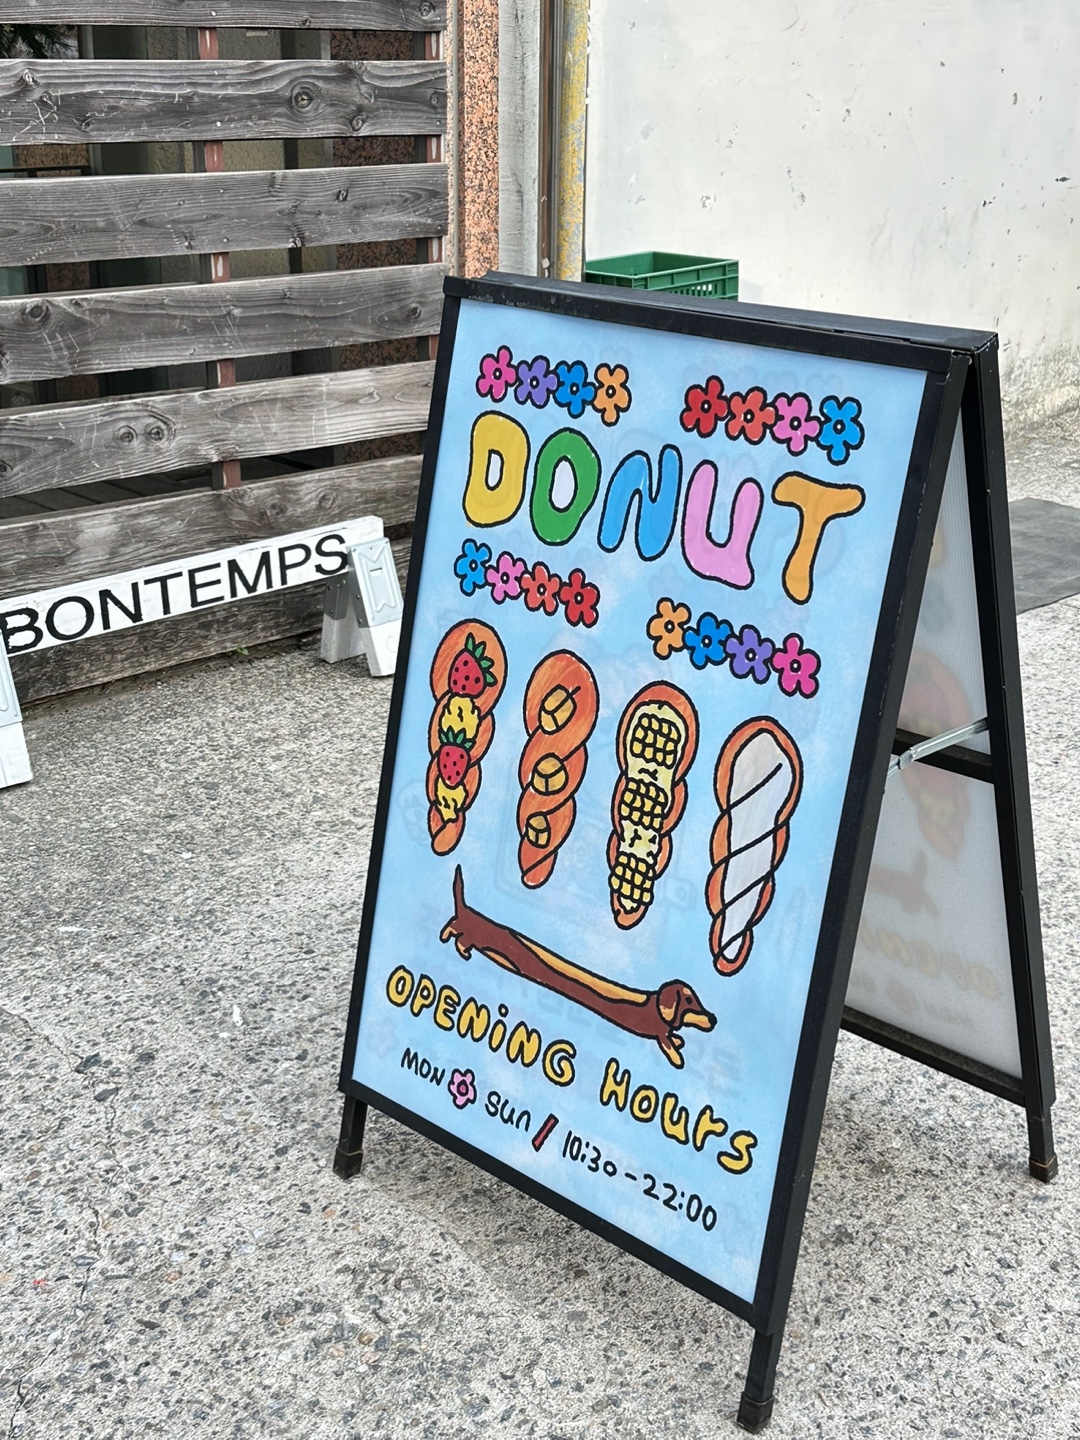 BONTEMPS
DONUT
OPENiNG HOurs
MON SUN / 10:30-22:00